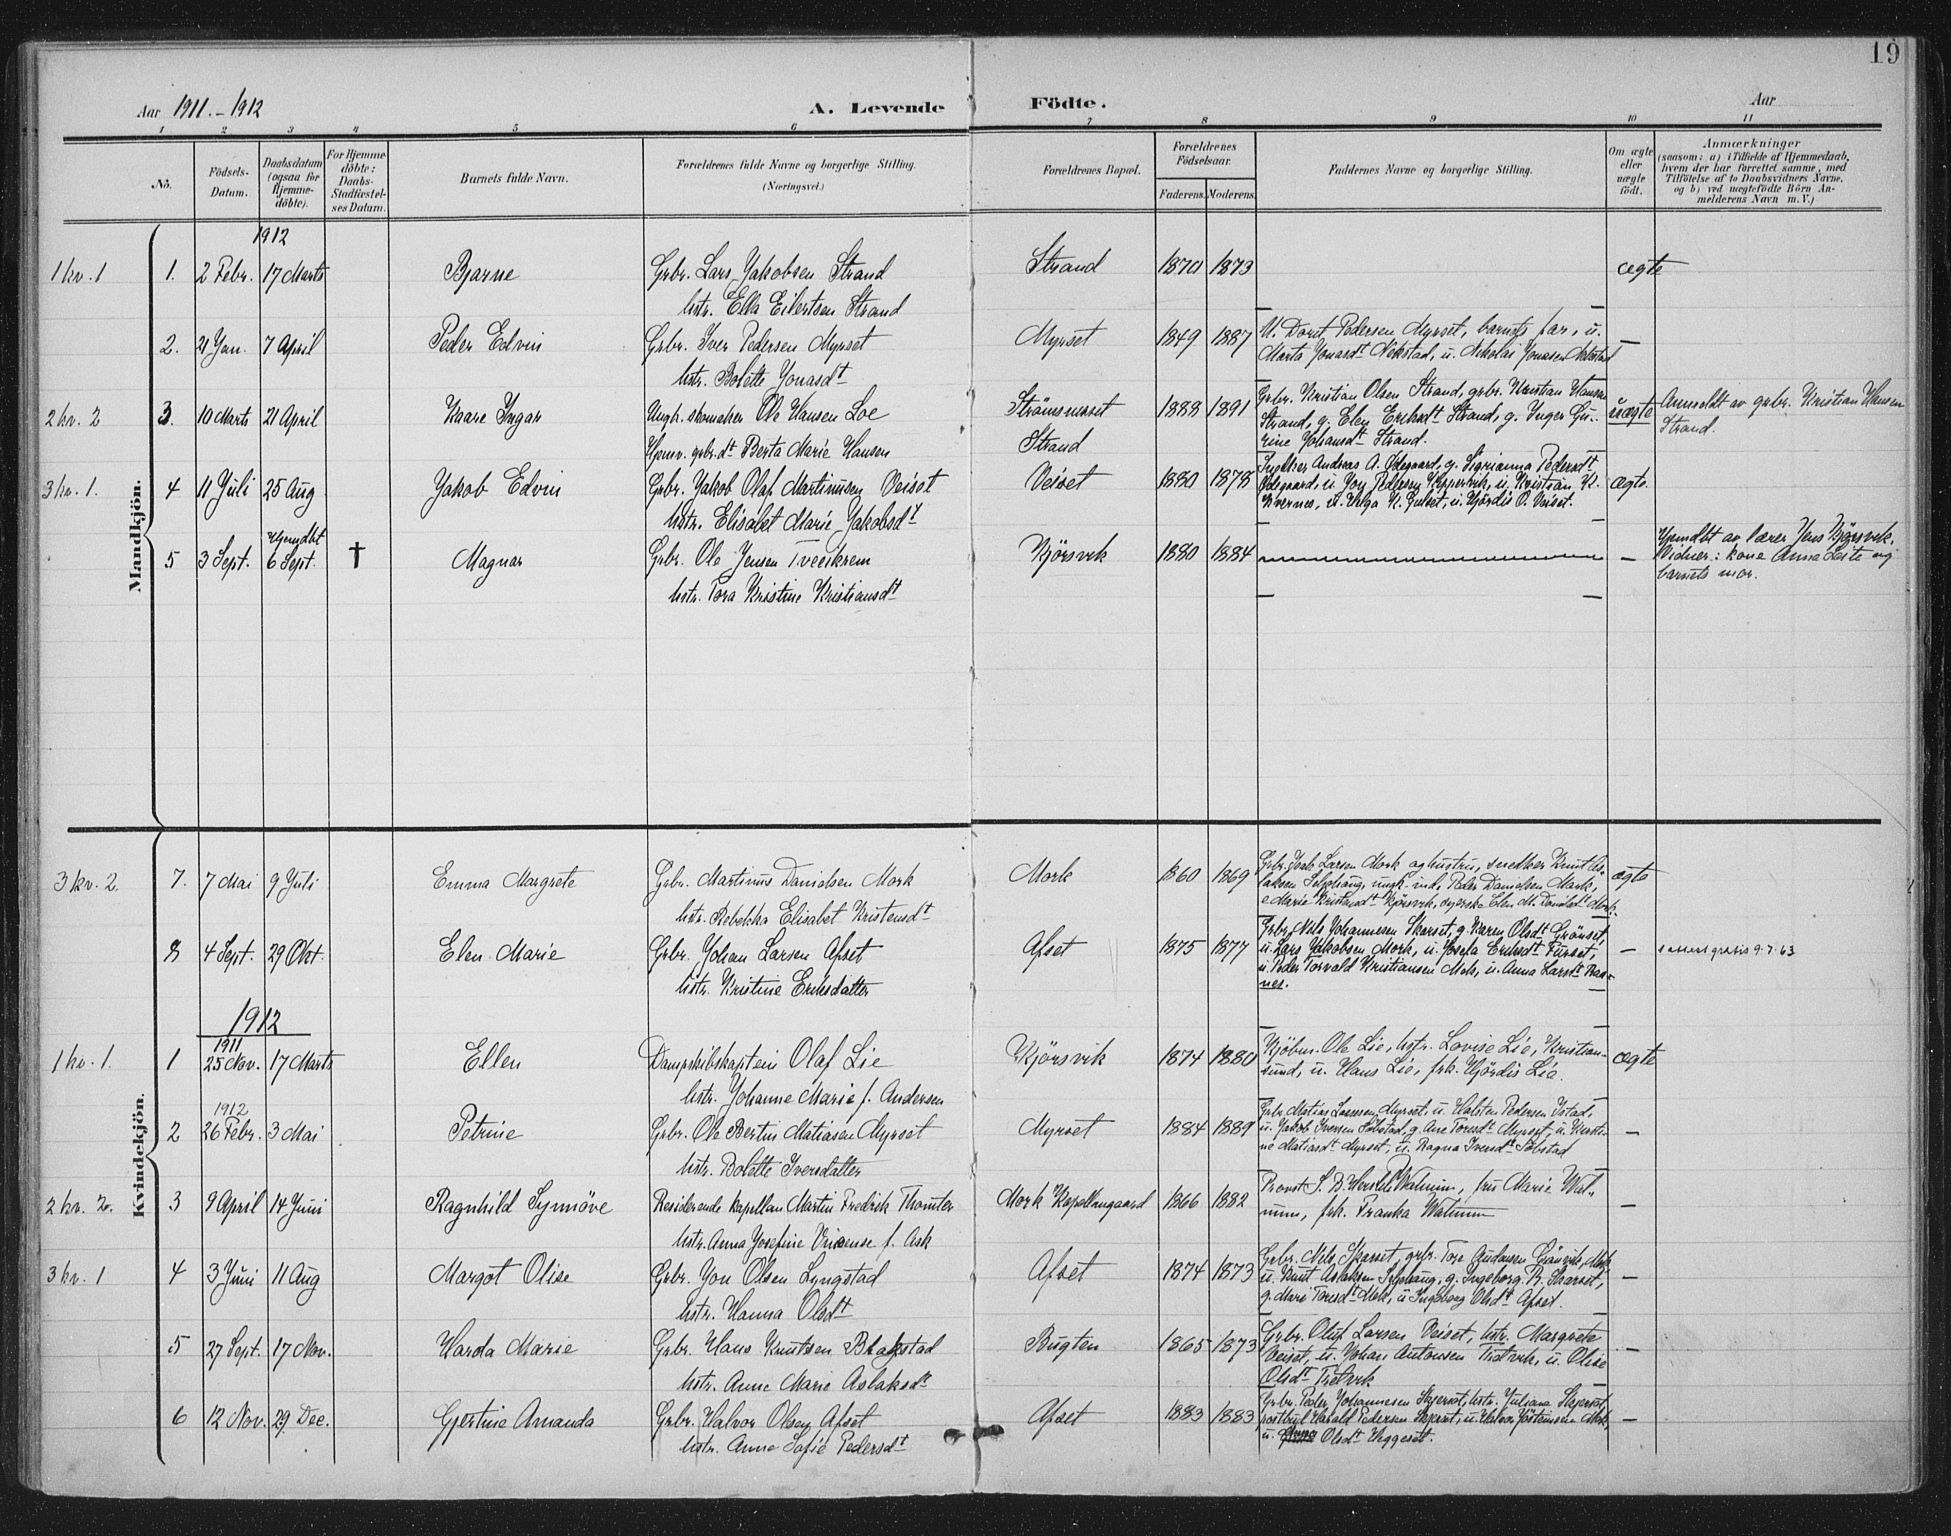 19
Aar 1911.-1912 A. Levende Födte. Aar
1 2 3 4 5 6 7 8 9 10 11
No. Födsels-Datum. Daabsdatum (ogsaa for Hjemme-döbte). For Hjemme-döbte: Daabs-Stadfæstel-ses Datum. Barnets fulde Navn. Forældrenes fulde Navne og borgerlige Stilling. (Næringsvei.) Forældrenes Bopæl. Forældrenes Födselsaar. Faderens. Moderens. Faddernes Navne og borgerlige Stilling. Om ægte eller uægte födt. Anmærkninger (saasom: a) i Tilfælde af Hjemmedaab, hvem der har forrettet samme, med Tilföielse af to Daabsvidners Navne. og b) ved uægtefödte Börn An-melderens Navn m. V.)
Mandkjön.
1912
1 kv. 1 1. 2 Febr. 17 Marts Bjarne Grbr. Lars Jakobsen Strand Strand 1870 1873 ægte
hstr. Ella Eilertsen Strand
2. 21 Jan. 7 April Peder Edvin Grbr. Iver Pedersen Myrset Myrset 1849 1887 U. Dorit Pedersen Myrset, barnets far, u. —
hstr. Bolette Jonasdt Marta Jonasdt Nekstad, u. Nikolai Jonasen
2 kv. 2 3. 10 Marts 21 April Kaare Ingar Ungk. skomaker Ole Hansen Loe Strömsneset 1888 1891 Grbr. Kristian Olsen Strand, grbr. Kristian Hansen uægte Anmeldt av grbr. Kristian Hansen
Strand Strand, g. Elen Eriksdt Strand, g. Inger Gu- Strand.
Hjemv. grbr.dt Berta Marie Hansen rine Johansdt Strand.
3 kv. 1. 4 11 Juli 25 Aug Jakob Edvin Grbr. Jakob Olaf Martinusen Veiset Veiset 1880 1878 Andreas A. Ödegaard, g. Sigrianna Pedersdt ægte
Ödegaard, u. Joy Pedersen u. Kristian K.
hstr. Elisabet Marie Jakobsdt Kvernes, u. Helga K. Gulset, u. Hjördis O. Veiset.
Hjemdbt
5 3 Sept. 6 Sept. † Magnar Grbr. Ole Jensen Tveeikrem Kjörsvik 1880 1884 — Hjemdbt av lærer Jens Kjörsvik.
Vidner: kone Anna Leite og
hstr. Tora Kristine Kristiansdt barnets mor.
Kvindekjön.
3 kv. 2. 7. 7 Mai 9 Juli Emma Margrete Grbr. Martinus Danielsen Mork Mork 1860 1869 Grbr. Larsen Mork og hustru, snedker Knut As- ægte
laksen Selphaug, ungk. ind. Peder Danielsen Mork,
hstr. Rebekka Elisabet Kristensdt e. Marie Kristensdt Kjörsvik, syerske Elen M. Danielsdt Mork.
8 4 Sept. 29 Okt. Elen Marie Grbr. Johan Larsen Afset Afset 1875 1877 Grbr. Nils Johannesen Skarset, g. Karen Olsdt Grönset, — s attest gratis 9-7-63
u. Lars Jakobsen Mork, u. Josefa Eriksdt Furset,
hstr. Kristine Eriksdatter u. Peder Torvald Kristiansen Mek, u. Anna Larsdt Raa-
nes.
1912
1911
1 kv. 1. 1 25 Nov. 17 Marts Ellen Dampskibskaptein Olaf Lie Kjörsvik 1874 1880 Kjöbm. Ole Lie, hstr. Lovise Lie, Kristian- ægte
sund, u. Hans Lie, frk. Hjördis Lie.
hstr. Johanne Marie f. Andersen
1912
2 26 Febr. 3 Mai Petrine Grbr. Ole Bertin Matiasen Myrset Myrset 1884 1889 Grbr. Matias Lassesen Myrset, u. Halsten Pedersen Istad, —
u. Jakob Iversen Solstad, g. Ane Toresdt Myrset, u. Kirsti-
hstr. Bolette Iversdatter ne Matiasdt Myrset, u. Ragna Iversdt Solstad
2 kv. 2. 3 9 April 14 Juni Ragnhild Synnöve Residerende kapellan Martin Fredrik Thomter Mork Kapellangaard 1866 1882 Provst S. B. Hersleb Walnum, fru Marie Wal- —
num, frk. Franka Walnum
hstr. Anna Josefine Vricense f. Ask
3 kv. 1 4 3 Juni 11 Aug Margot Olise Grbr. Jon Olsen Lyngstad Afset 1874 1873 Grbr. Nils Skarset, grbr. Tore Gudmsen Grönvik, Mek —
u. Knut Aslaksen Selphaug, g. Ingeborg R. Skarset,
hstr. Hanna Olsdt g. Mari Toresdt Mek, u. Ingeborg Olsdt Afset.
5 27 Sept. 17 Nov. Harda Marie Grbr. Hans Knutsen Blakstad Bugten 1865 1873 Grbr. Oluf Larsen Veiset, hstr. Margrete —
Veiset, u. Johan Antonsen Tretvik, u. Olise
hstr. Anne Marie Aslaksdt Olsdt Tretvik
6 12 Nov. 29 Dec. Gjertine Amanda Grbr. Halvor Olsen Afset Afset 1883 1883 Grbr. Peder Johannesen Skjerset, hstr. Juliana Skjerset, —
postbud Harald Pedersen Skjerset, u. Halvor Jöstensen Mek,
hstr. Anne Sofie Pedersdt u. Anna Olsdt Heggeset.